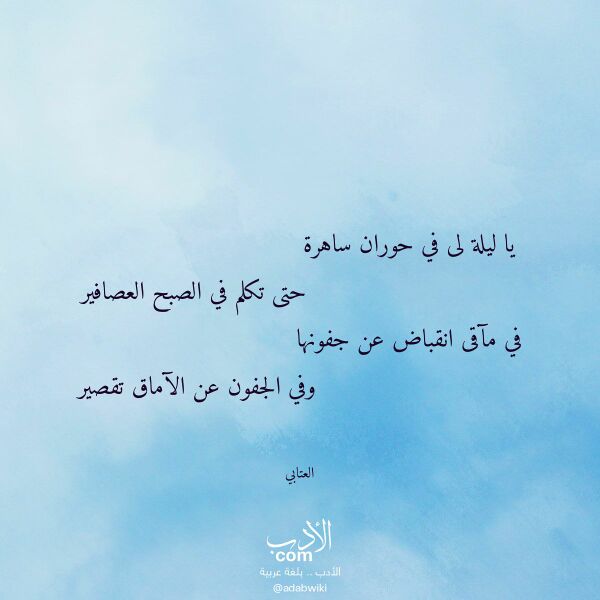 يا ليلة لى في حوران ساهرة
حتى تكلم في الصبح العصافير
في مآقى انقباض عن جفونها
وفي الجفون عن الآماق تقصير
العتابي
الأدب
com
الأدب .. بلغة عربية
@adabwiki